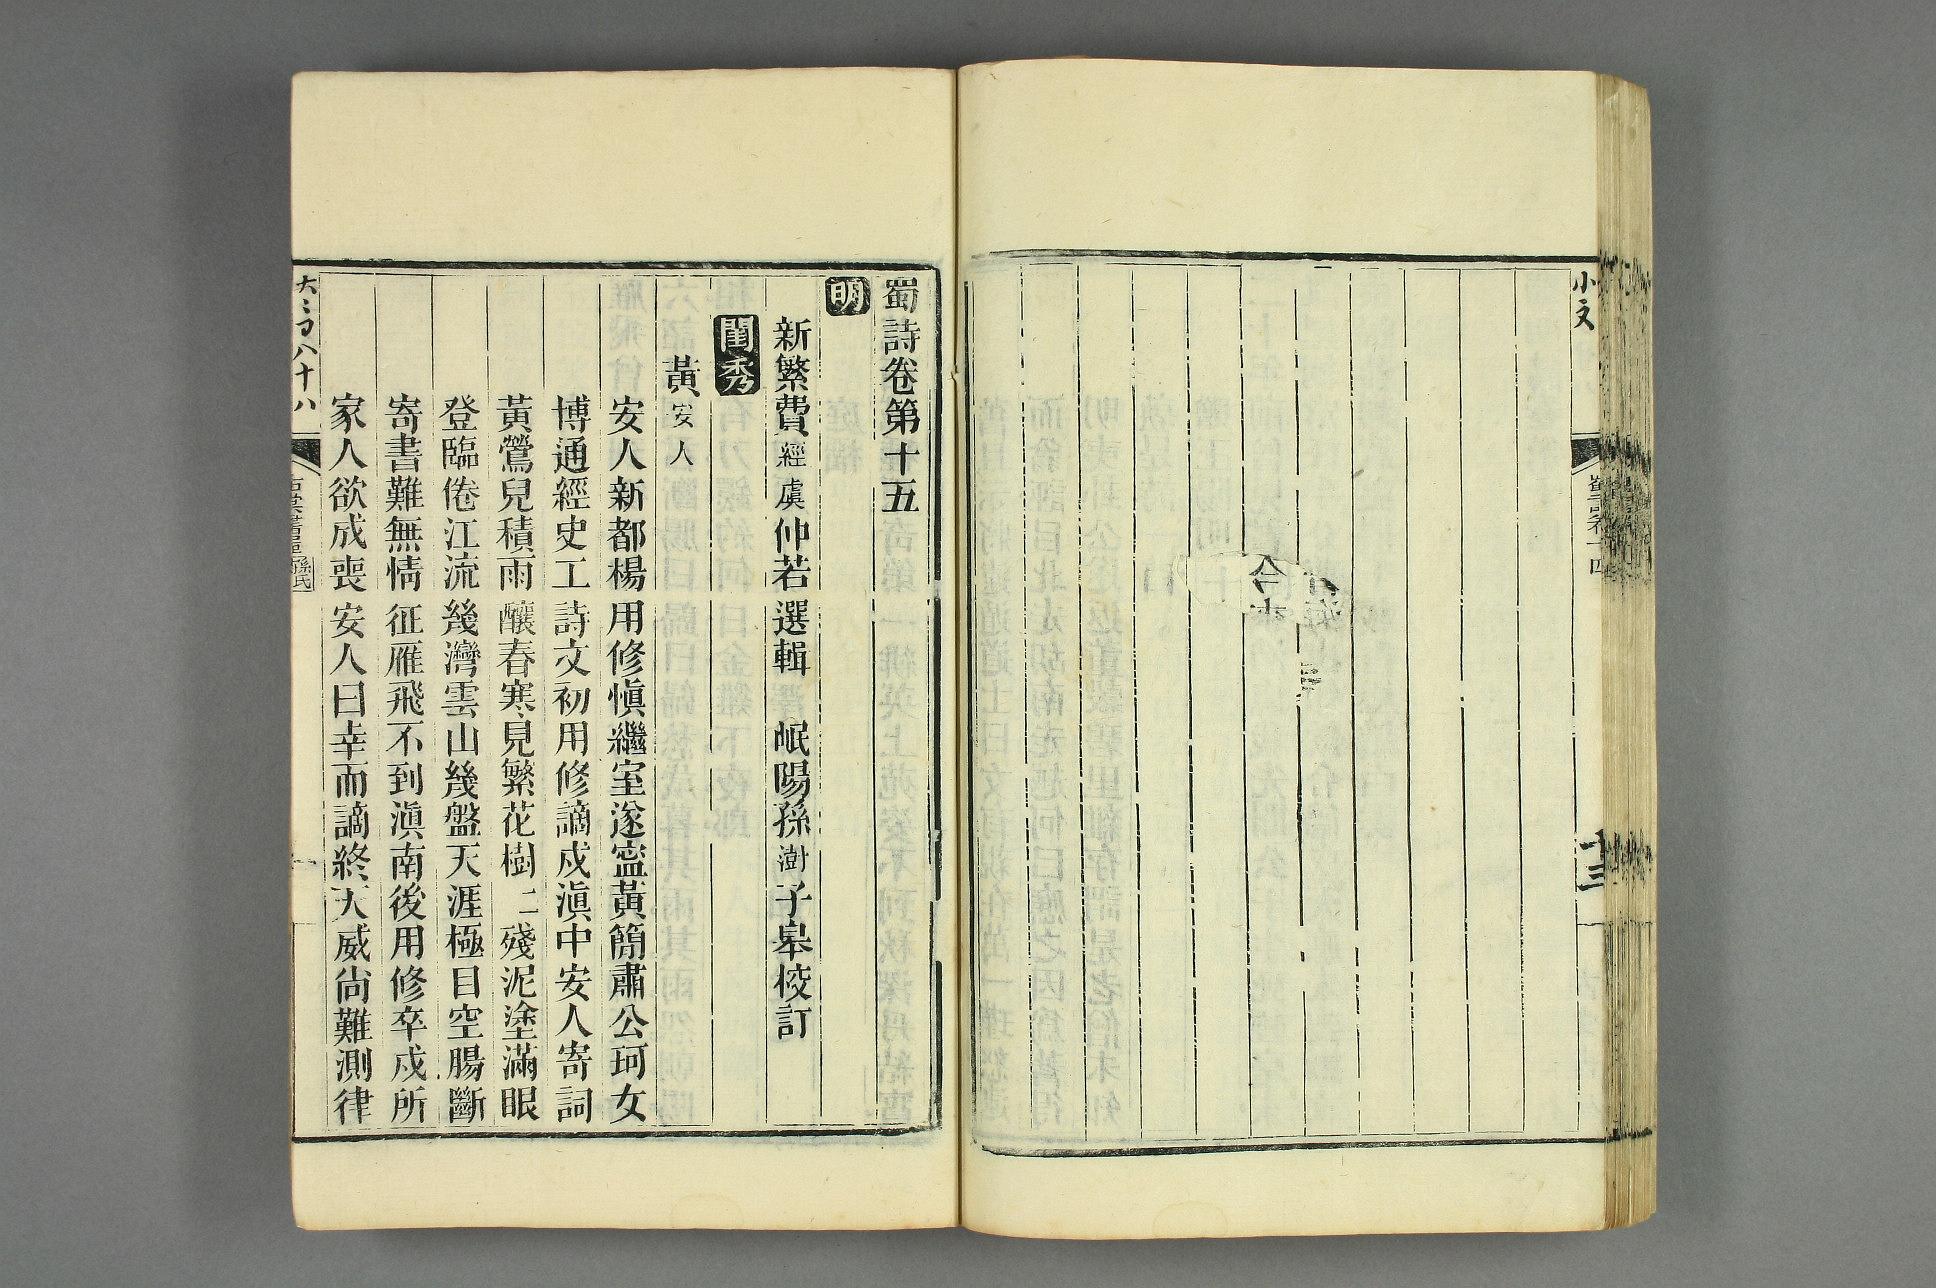 小文
蜀詩卷十四
十三
蜀詩卷第十五
明
新繁費經虞仲若選輯　岷陽孫澍子皋校訂
閨秀
黃安人
安人新都楊用修愼繼室遂寍黃簡肅公珂女
博通經史工詩文初用修謫戍滇中安人寄詞
黃鶯兒積雨釀春寒見繁花樹二殘泥塗滿眼
登臨倦江流幾灣雲山幾盤天涯極目空腸斷
寄書難無情征雁飛不到滇南後用修卒戍所
家人欲成喪安人曰幸而謫終天威尙難測律
八十八
孫氏
一